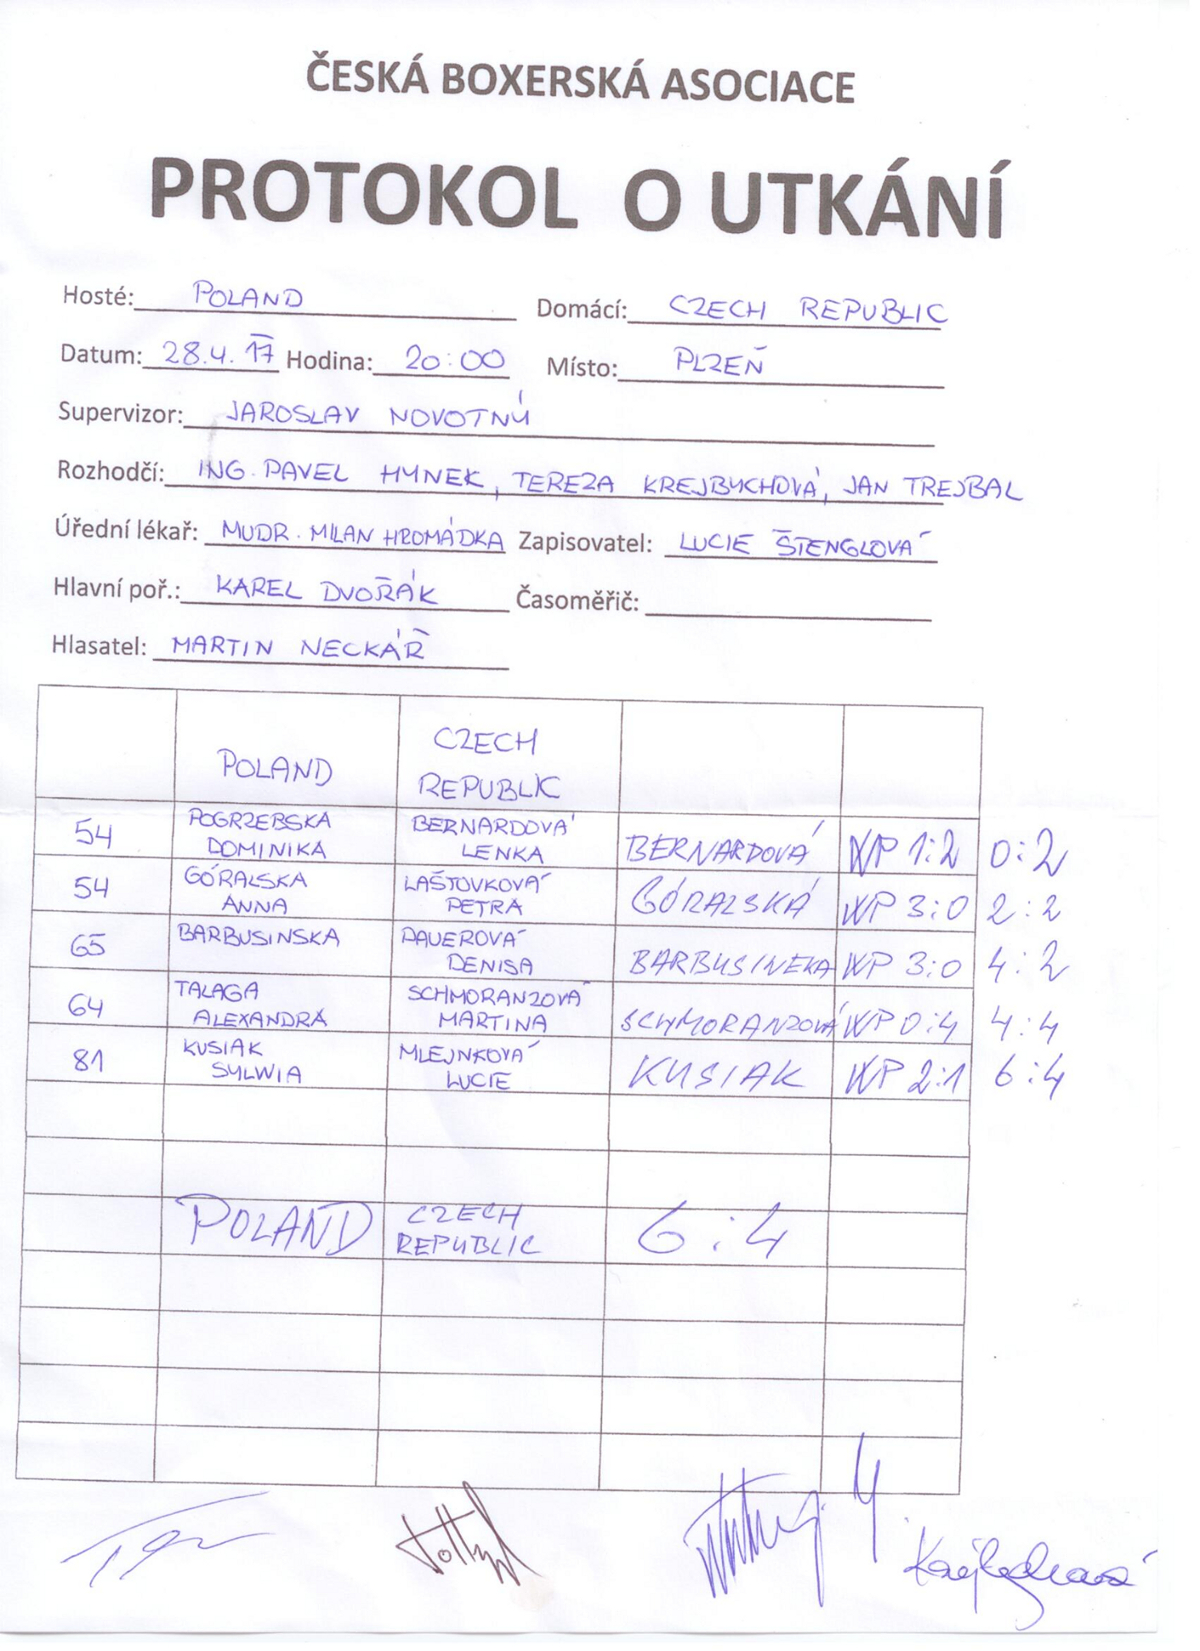 ČESKÁ BOXERSKÁ ASOCIACE
PROTOKOL O UTKÁNÍ
Hosté: POLAND Domácí: CZECH REPUBLIC
Datum: 28.4.17 Hodina: 20:00 Místo: PLZEŇ
Supervizor: JAROSLAV NOVOTNÝ
Rozhodčí: ING. PAVEL HYNEK, TEREZA KREJBYCHOVÁ, JAN TREJBAL
Úřední lékař: MUDR. MILAN HROMÁDKA Zapisovatel: LUCIE ŠTENGLOVÁ
Hlavní poř.: KAREL DVOŘÁK Časoměřič:
Hlasatel: MARTIN NECKÁŘ
POLAND CZECH REPUBLIC
54 POGRZEBSKA DOMINIKA BERNARDOVÁ LENKA BERNARDOVÁ WP 1:2 0:2
54 GÓRALSKA ANNA LAŠTOVKOVÁ PETRA GÓRALSKÁ WP 3:0 2:2
65 BARBUSINSKA PAUEROVÁ DENISA BARBUSINEKA WP 3:0 4:2
64 TALAGA ALEXANDRA SCHMORANZOVÁ MARTINA SCHMORANZOVÁ WP 0:4 4:4
81 KUSIAK SYLWIA MLEJNKOVÁ LUCIE KUSIAK WP 2:1 6:4
POLAND CZECH REPUBLIC 6:4